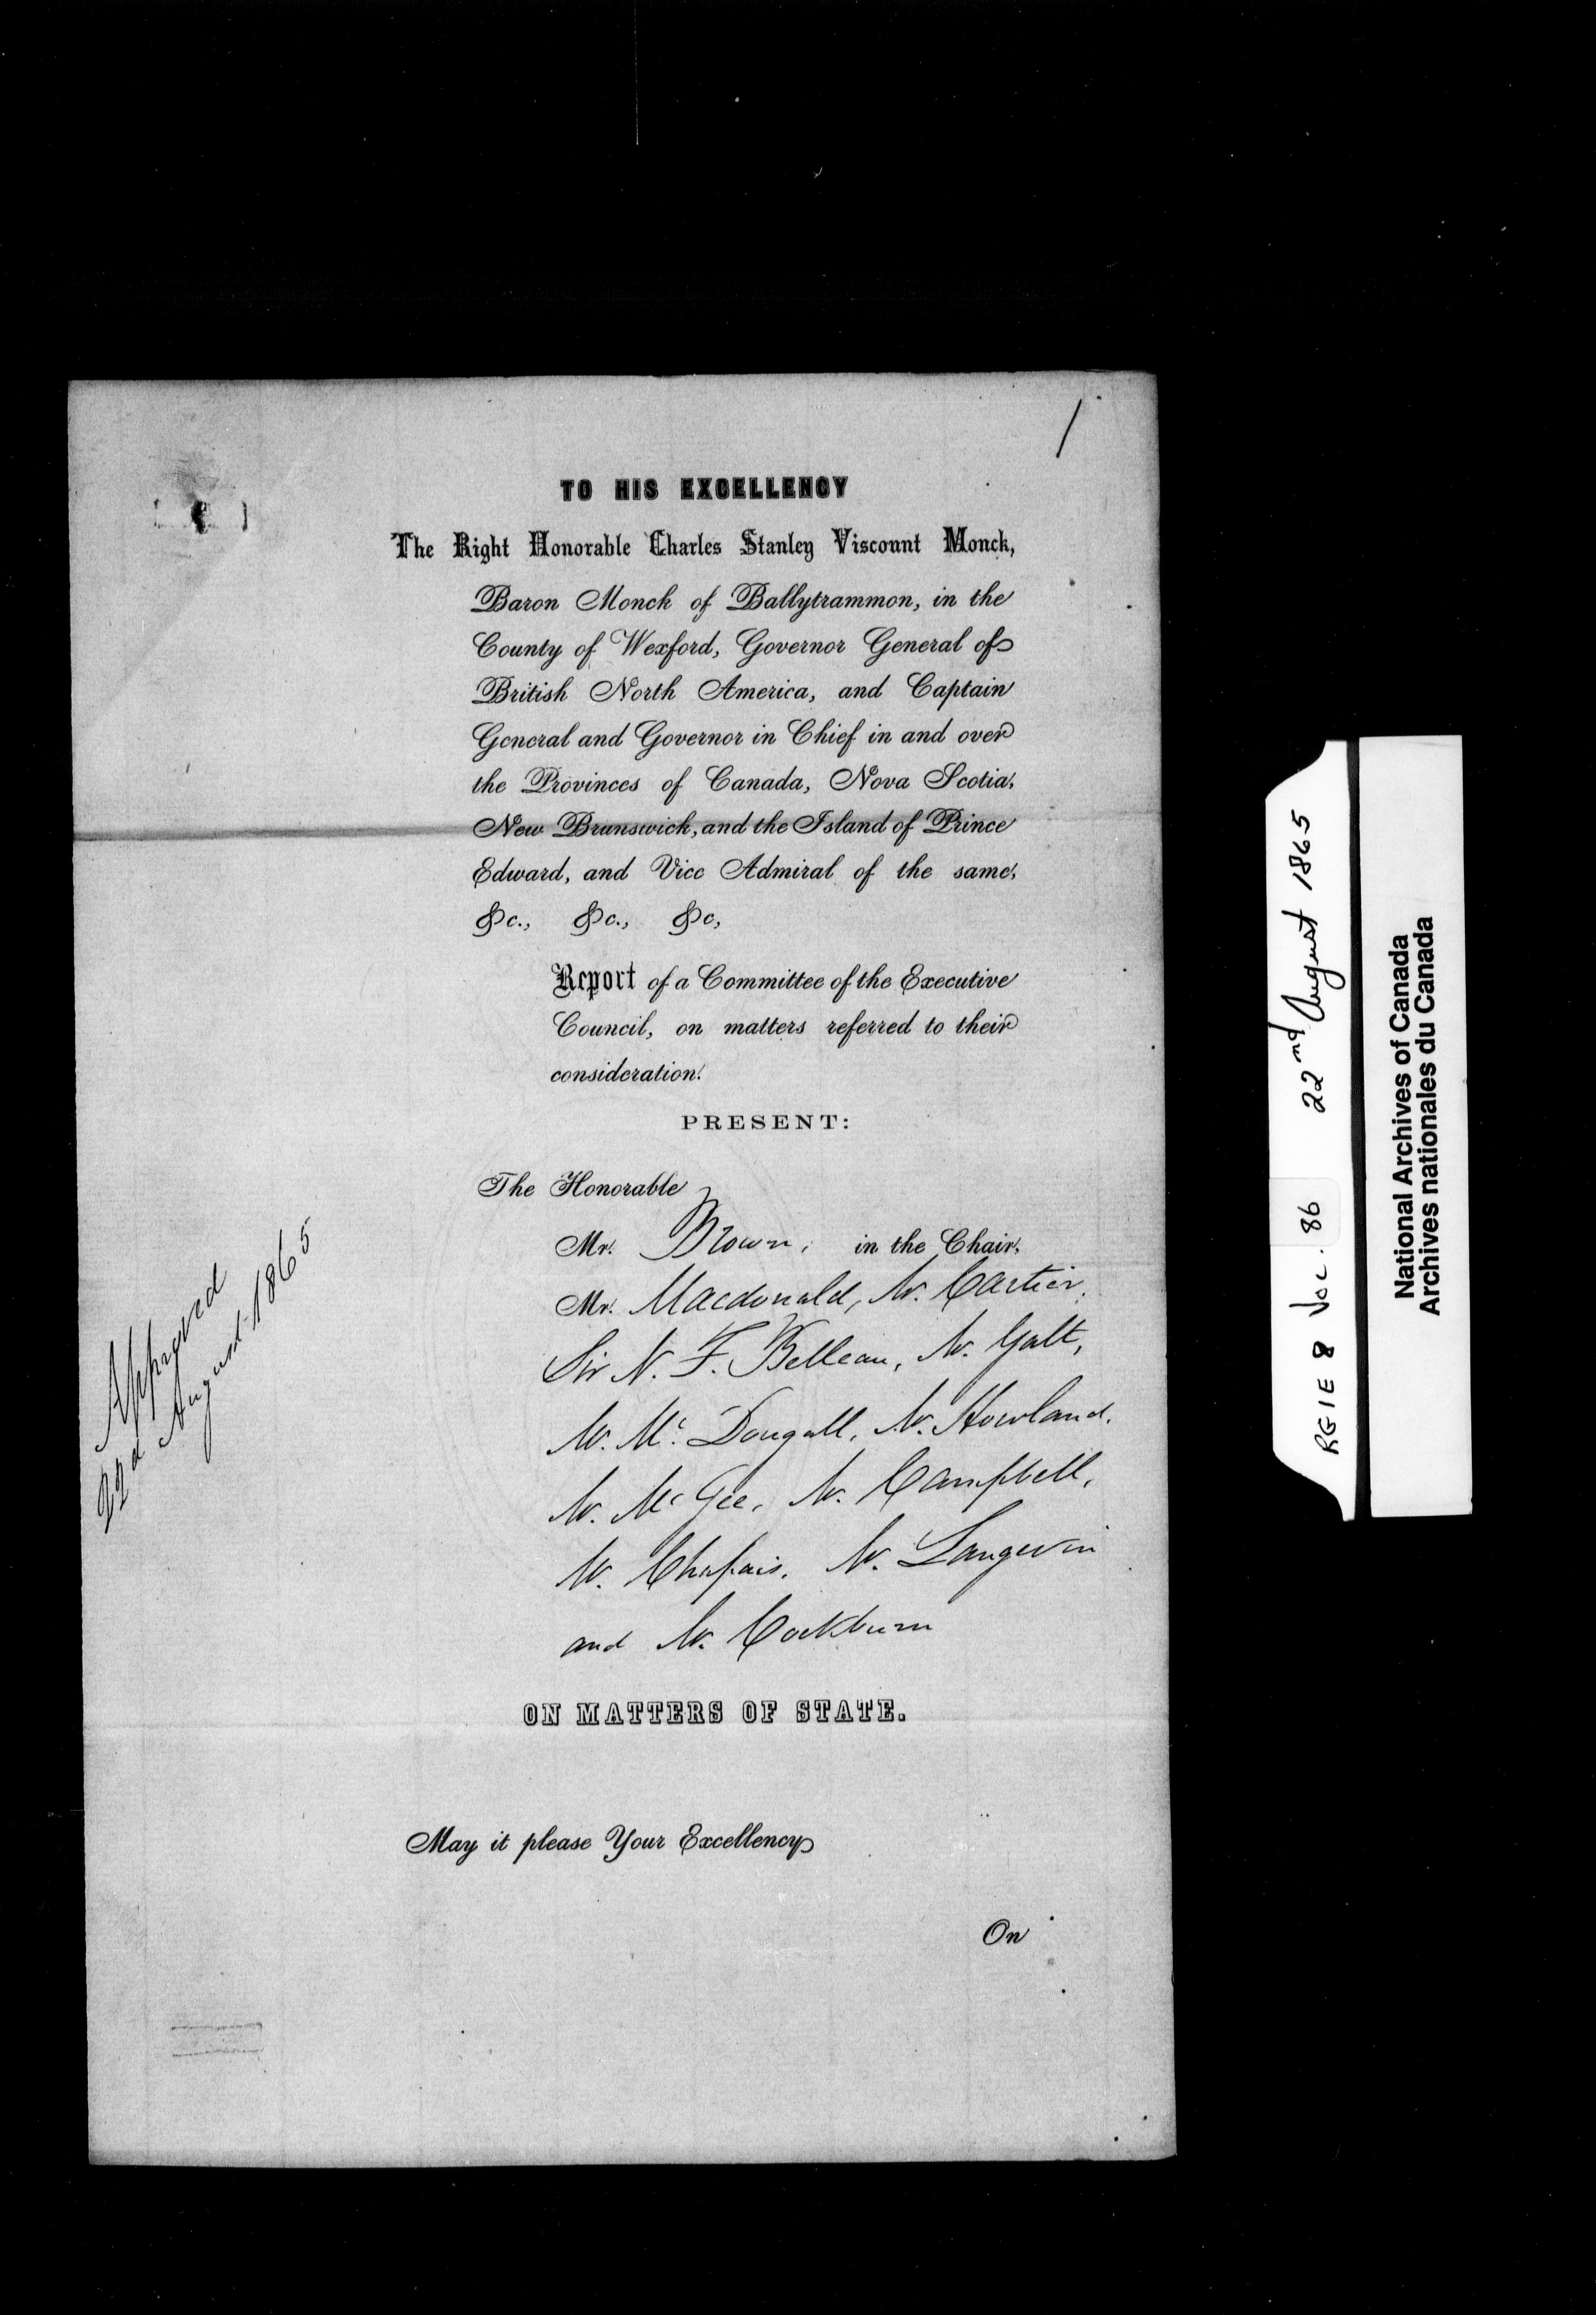 1
TO HIS EXCELLENCY
The Right Honorable Charles Stanley Viscount Monck,
Baron Monck of Ballytrammon, in the
County of Wexford, Governor General of
British North America, and Captain
General and Governor in Chief in and over
the Provinces of Canada, Nova Scotia,
New Brunswick, and the Island of Prince
Edward, and Vice Admiral of the same,
&c., &c., &c,
Report of a Committee of the Executive
Council, on matters referred to their
consideration.
PRESENT:
The Honorable
Mr. Brown, in the Chair,
Mr. Macdonald, Mr. Cartier,
Sir N. F. Belleau, Mr. Galt,
Mr. Mc Dougall, Mr. Howland,
Mr. Mc Gee, Mr. Campbell,
Mr. Chapais, Mr. Langevin
and Mr. Cockburn
ON MATTERS OF STATE.
May it please Your Excellency
On
Approved
22d August 1865
RG1E8 Vol. 86 22nd August 1865
National Archives of Canada
Archives nationales du Canada